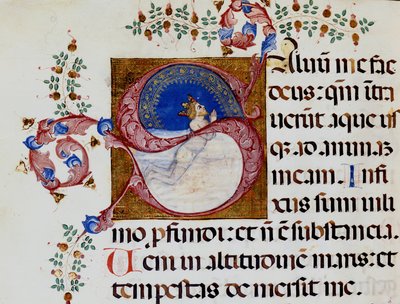 Salvū me fac
deus: qm̄ ītra
verūt aque us
qz ad animaz
meam. Infi
xus sum ī lı
mo p̄fundi: et nō ē substancia.
Veni in altitudinē maris: et
tempestas demersit me.